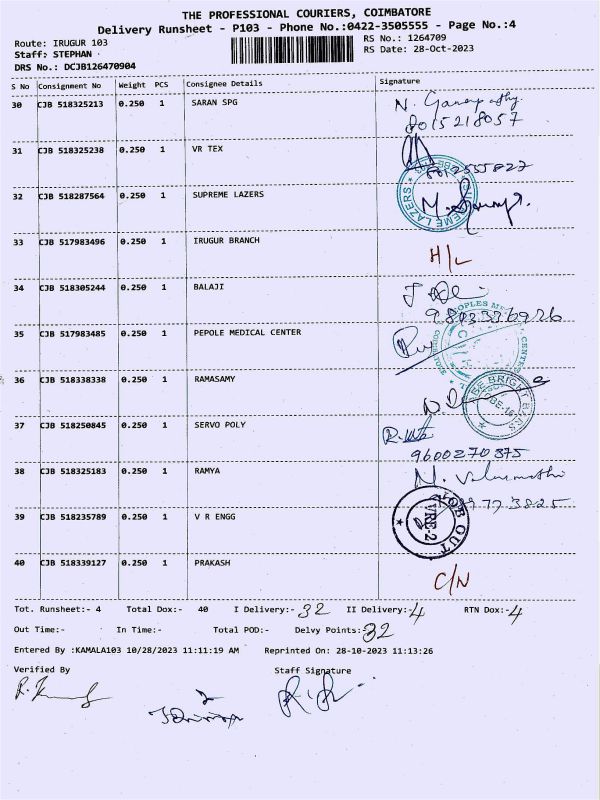 THE PROFESSIONAL COURIERS, COIMBATORE
Delivery Runsheet - P103 - Phone No.:0422-3505555 - Page No.:4
Route: IRUGUR 103
RS No.: 1264709
Staff: STEPHAN
RS Date: 28-Oct-2023
DRS No.: DCJB126470904
S No Consignment No Weight PCS Consignee Details Signature
30 CJB 518325213 0.250 1 SARAN SPG
8015218057
31 CJB 518325238 0.250 1 VR TEX
32 CJB 518287564 0.250 1 SUPREME LAZERS
SUPREME LAZERS
33 CJB 517983496 0.250 1 IRUGUR BRANCH H/L
34 CJB 518305244 0.250 1 BALAJI
35 CJB 517983485 0.250 1 PEPOLE MEDICAL CENTER
36 CJB 518338338 0.250 1 RAMASAMY
37 CJB 518250845 0.250 1 SERVO POLY
9600270375
38 CJB 518325183 0.250 1 RAMYA
39 CJB 518235789 0.250 1 V R ENGG
JOB OUT
VRE-2
40 CJB 518339127 0.250 1 PRAKASH C/N
Tot. Runsheet:- 4 Total Dox:- 40 I Delivery:- 32 II Delivery:- 4 RTN Dox:- 4
Out Time:- In Time:- Total POD:- Delvy Points:- 32
Entered By :KAMALA103 10/28/2023 11:11:19 AM Reprinted On: 28-10-2023 11:13:26
Verified By Staff Signature